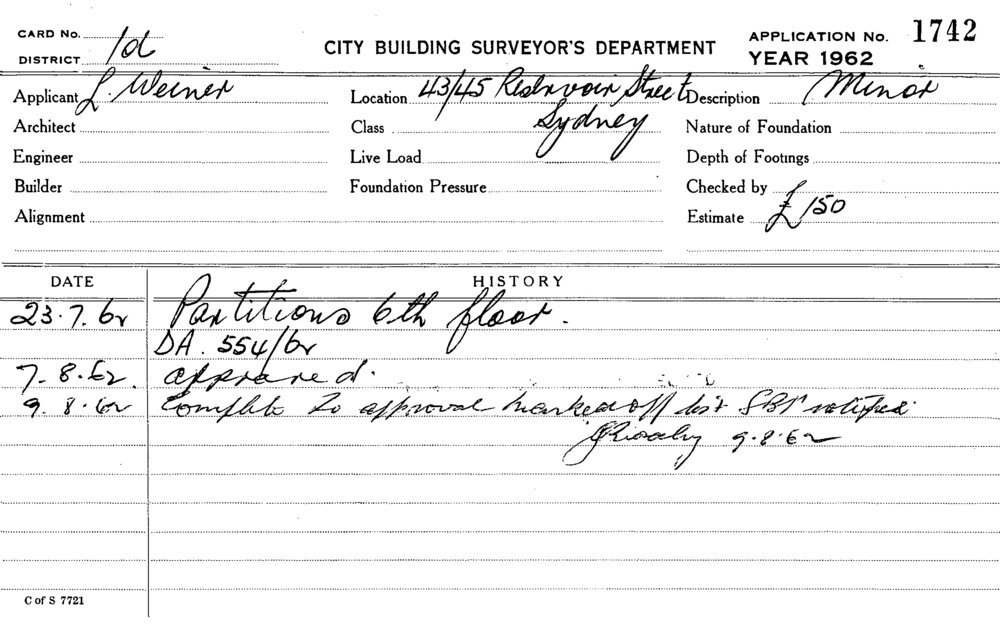 CARD No.
DISTRICT 1d
CITY BUILDING SURVEYOR'S DEPARTMENT
APPLICATION No. 1742
YEAR 1962
Applicant L. Weiner
Location 43/45 Reservoir Street
Sydney
Description Minor
Architect
Class
Nature of Foundation
Engineer
Live Load
Depth of Footings
Builder
Foundation Pressure
Checked by
Alignment
Estimate £150
DATE HISTORY
23.7.62 Partitions 6th floor.
DA. 554/62
7.8.62. approved.
9.8.62 Complete to approval marked off list SBI notified
9.8.62
C of S 7721